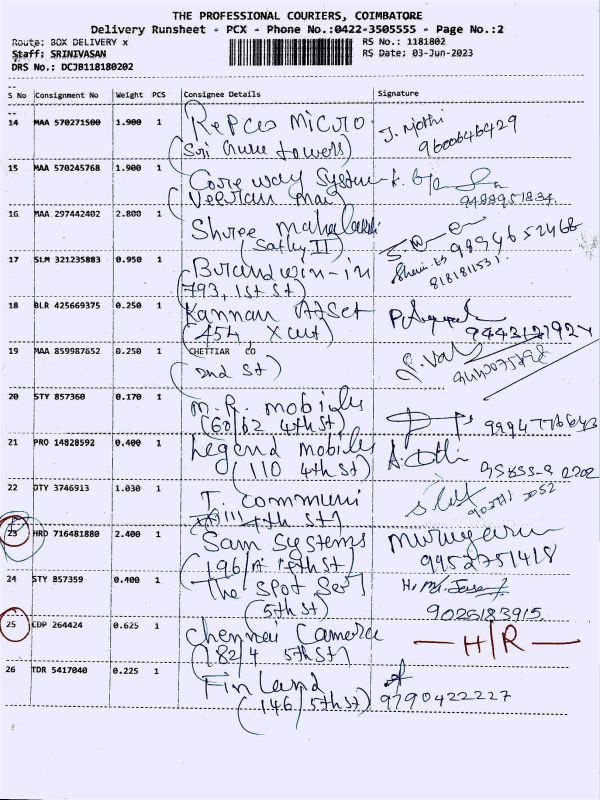 THE PROFESSIONAL COURIERS, COIMBATORE
Delivery Runsheet - PCX - Phone No.:0422-3505555 - Page No.:2
Route: BOX DELIVERY x
RS No.: 1181802
Staff: SRINIVASAN
RS Date: 03-Jun-2023
DRS No.: DCJB118180202
S No Consignment No Weight PCS Consignee Details Signature
14 MAA 570271500 1.900 1 Repco Micro J. Mothi
(Sri towers) 9600646429
15 MAA 570245768 1.900 1 Core way System
(Veerian 9488951834
16 MAA 297442402 2.800 1 Shree Mahalakshmi
(Sathy II) 9894652468
17 SLM 321235883 0.950 1 Brandwin-in
(793, 1st St) 8181811531
18 BLR 425669375 0.250 1 Kannan
(454, X cut) 9443121924
19 MAA 859987652 0.250 1 CHETTIAR CO
(2nd St)
20 STY 857360 0.170 1 M.R. mobiles
(60/62 4th St)
21 PRO 14828592 0.400 1 Legend mobiles
(110 4th St)
22 DTY 3746913 1.030 1 T. communi
4th St)
23 HRD 716481880 2.400 1 Sam Systems Murugan
9952751418
24 STY 857359 0.400 1 The Spot
(5th St) 9026183915.
25 CDP 264424 0.625 1 Chennai Camera — H/R —
(182/4 5th St)
26 TDR 5417040 0.225 1 Finland
(146/5th St) 9790422227